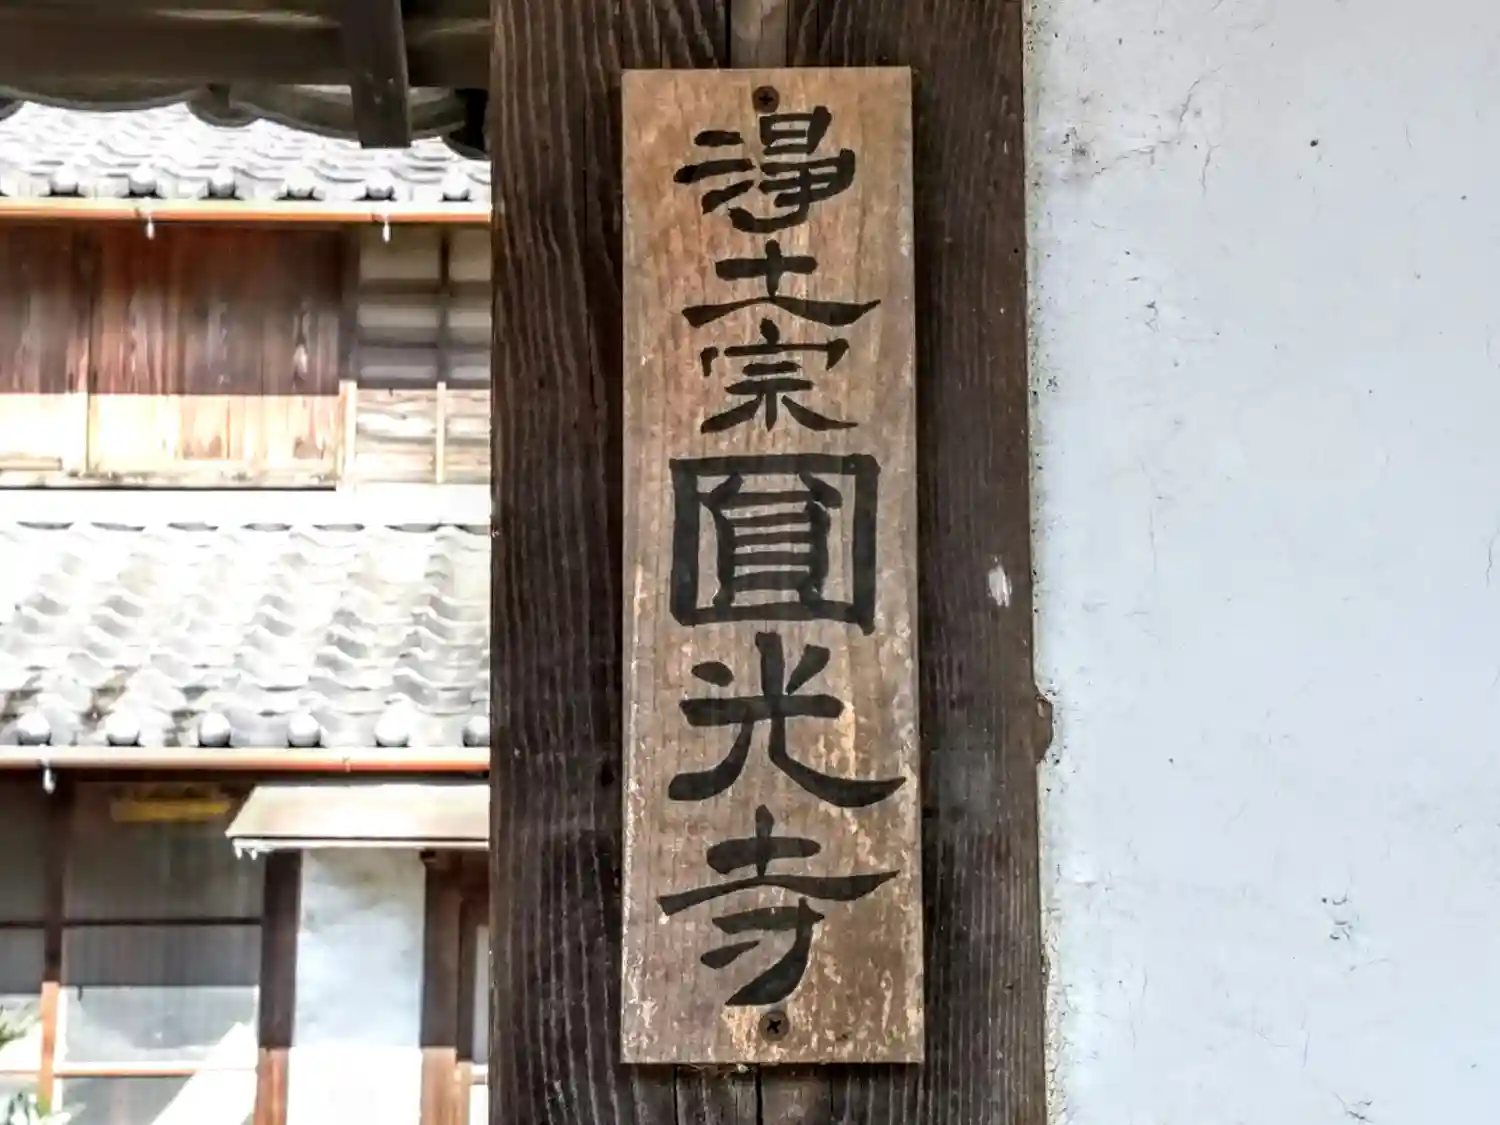 淨土宗圓光寺